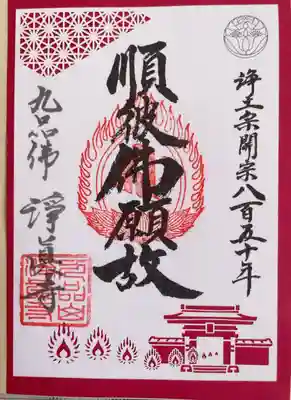 浄土宗開宗八百五十年
順彼佛願故
九品佛 淨真寺